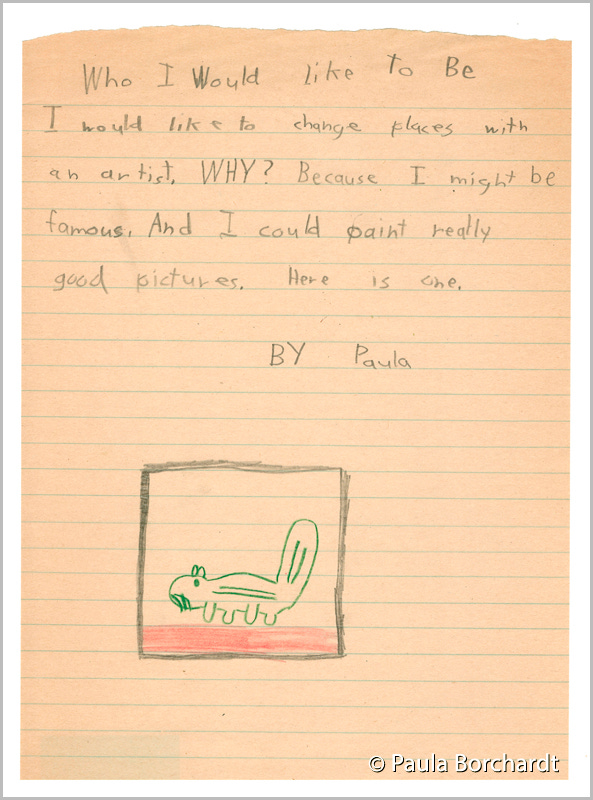 Who I Would like To Be
I would like to change places with
an artist. WHY? Because I might be
famous. And I could paint really
good pictures. Here is one.
BY Paula
© Paula Borchardt